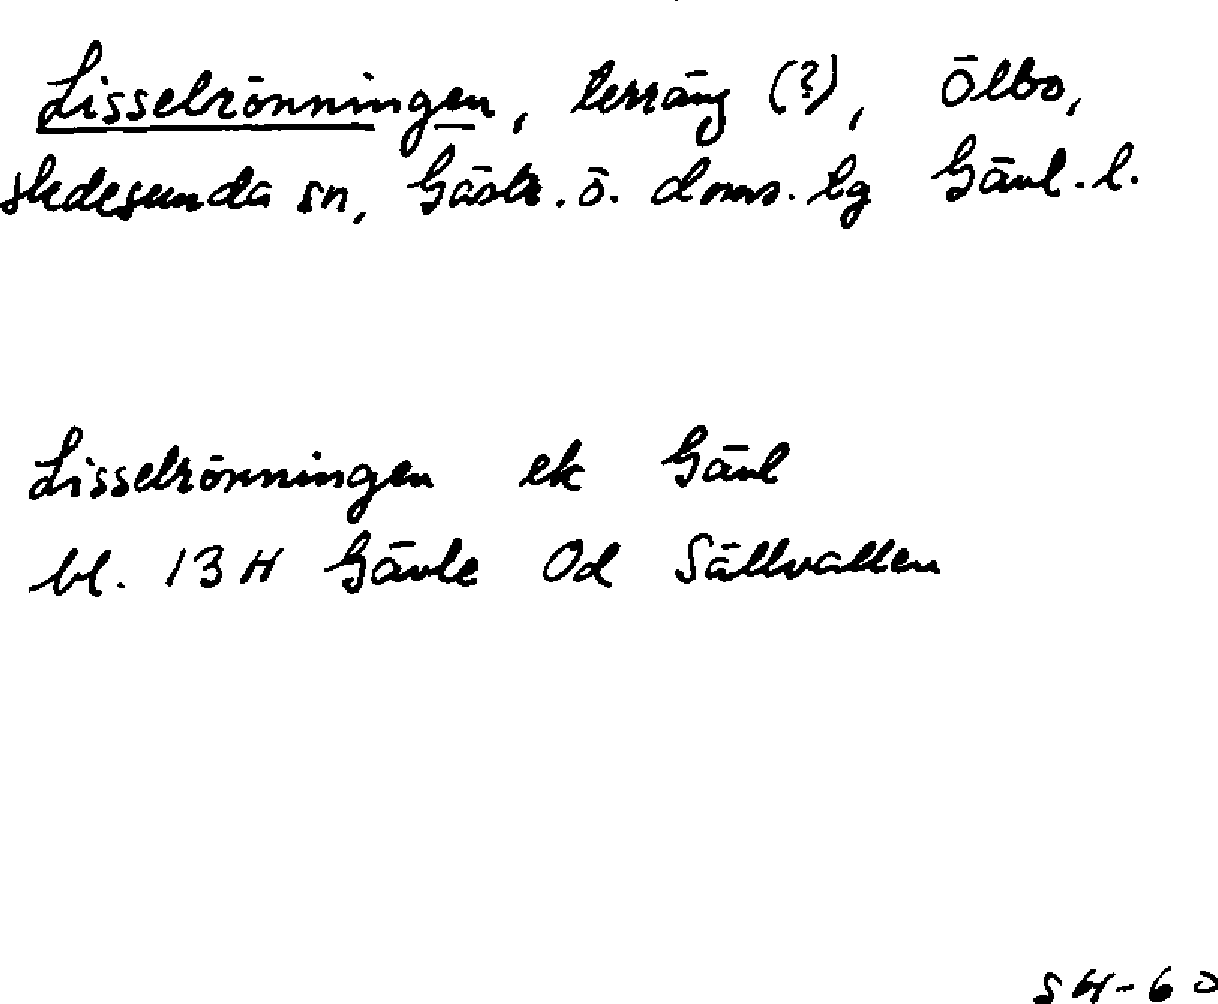 Lisselrönningen, terräng (?), Ölbo,
Hedesunda sn, Gästr. ö. doms. lg Gävl. l.
Lisselrönningen ek Gävl
bl. 13 H Gävle 0d Sällvallen
SH-60